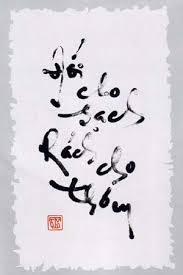 Đói
cho
sạch
Rách cho
thơm